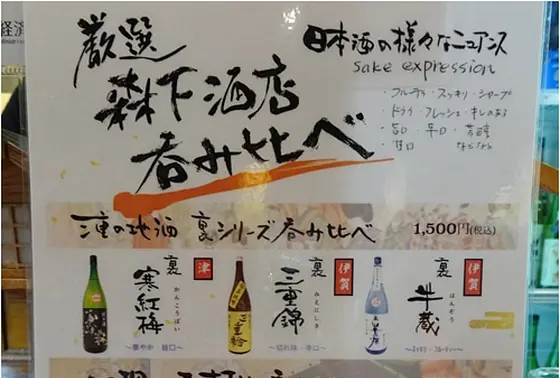 経済
厳選
森下酒店
呑み比べ
日本酒の様々なニュアンス
sake expression
・フルーティ・スッキリ・シャープ
・ドライ フレッシュ・キレのある
・旨口・辛口・芳醇
・甘口 などなど
三重の地酒 裏シリーズ呑み比べ 1,500円(税込)
裏 寒紅梅 かんこうばい 津
～華やか・旨口～
裏 三重錦 みえにしき 伊賀
～切れ味・辛口～
裏 半蔵 はんぞう 伊賀